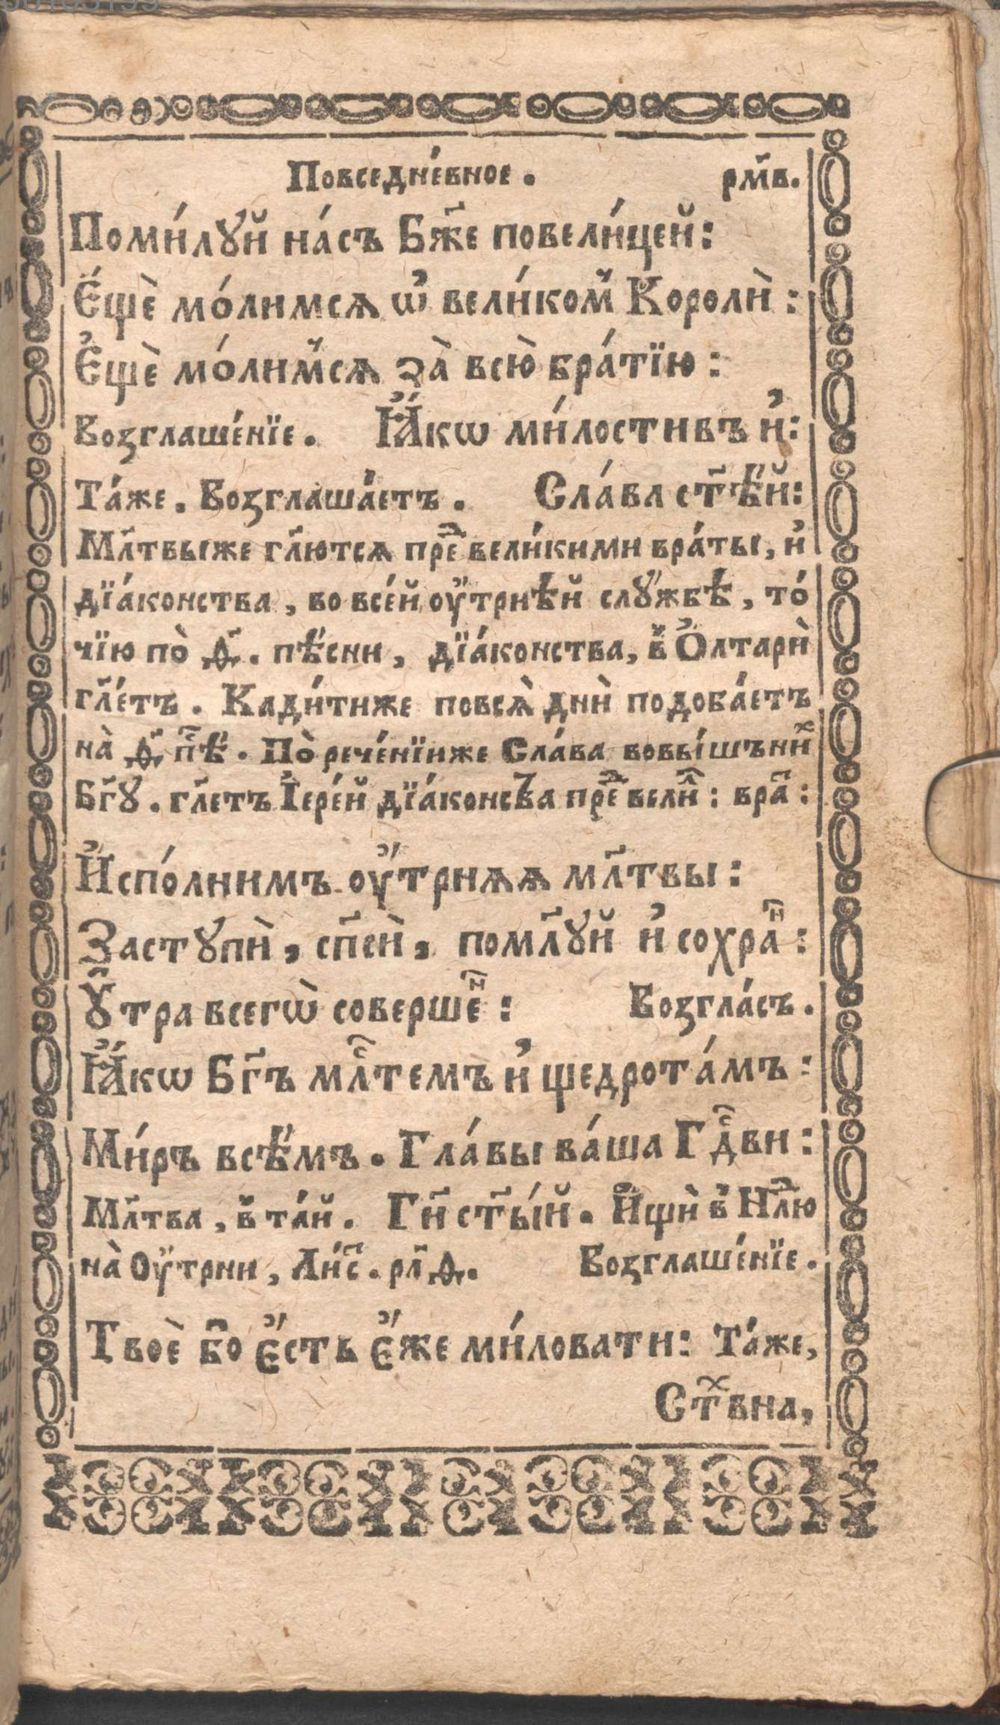 Повседне́вное. рм҃в.
Поми́лꙋй на́съ Бж҃е повели́цей:
Е҆́щѐ мо́лимсѧ ѡ҆ вели́ком̾ Королѝ:
Е҆щѐ мо́лим̾сѧ за̀ всю̀ бра́тїю:
Возглаше́нїе. Ꙗ҆́кѡ ми́лостивъ и҆:
Та́же. Возглаша́етъ. Сла́ва ст҃ѣ́й:
Мл҃твыже гл҃ютсѧ преⷣ вели́кими вра́ты, и҆
дїа́конства, во все́й оу҆́трнѣй слꙋ́жбѣ, то́
чїю по̀ ѳ҃. пѣ́сни, дїа́конства, в̾ Ѻ҆лтарѝ
гл҃е́тъ. Кади́тиже повсѧ̀ днѝ подоба́етъ
на̀ ѳ҃ пⷭ҇ѣ. По̀ рече́нїиже Сла́ва вовы́шъниⷯ
Бг҃ꙋ. гл҃етъ І҆ере́й дїа́консⷡ҇а преⷣ велиⷦ: враⷮ:
И҆спо́лнимъ оу҆́трнѧѧ мл҃твы:
Застꙋпѝ, сп҃сѝ, помл҃ꙋй и҆ сохраⷩ:
Ꙋ҆́тра всегѡ̀ совершеⷩ: Возгла́съ.
Ꙗ҆́кѡ Бг҃ъ млⷭ҇темъ и҆ щедрота́мъ:
Ми́ръ всѣ́мъ. Гла́вы ва́ша Гдⷭ҇ви:
Мл҃тва, в̾ та́й. Ги҃ ст҃ы́й. И҆щѝ в̾ Нлⷣю
на̀ Оу҆́трни, Ли́сⷮ. рл҃ѳ. Возглаше́нїе.
Твоѐ бо҃ є҆́сть є҆́же ми́ловати: Та́же,
Стⷯвна,